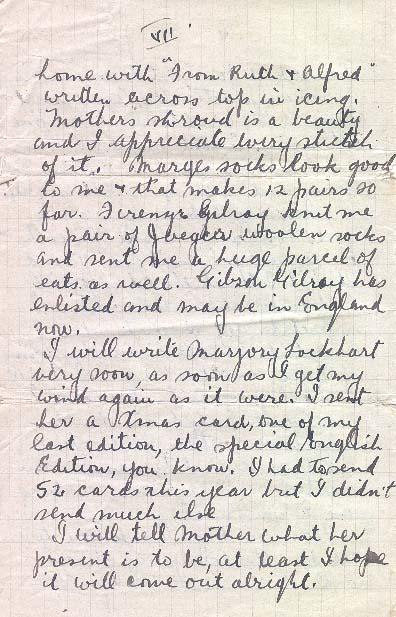 VII
home with "From Ruth & Alfred"
written across top in icing.
Mothers shroud is a beauty
and I appreciate every stitch
of it. Marges socks look good
to me & that makes 12 pairs so
far. Gilray knit me
a pair of Jaeger woolen socks
and sent me a huge parcel of
eats as well. Gibson Gilray has
enlisted and may be in England
now.
I will write Marjory Lockhart
very soon, as soon as I get my
wind again as it were. I sent
her a Xmas card, one of my
last edition, the special English
Edition, you know. I had to send
52 cards this year but I didn't
send much else
I will tell Mother what her
present is to be, at least I hope
it will come out alright.